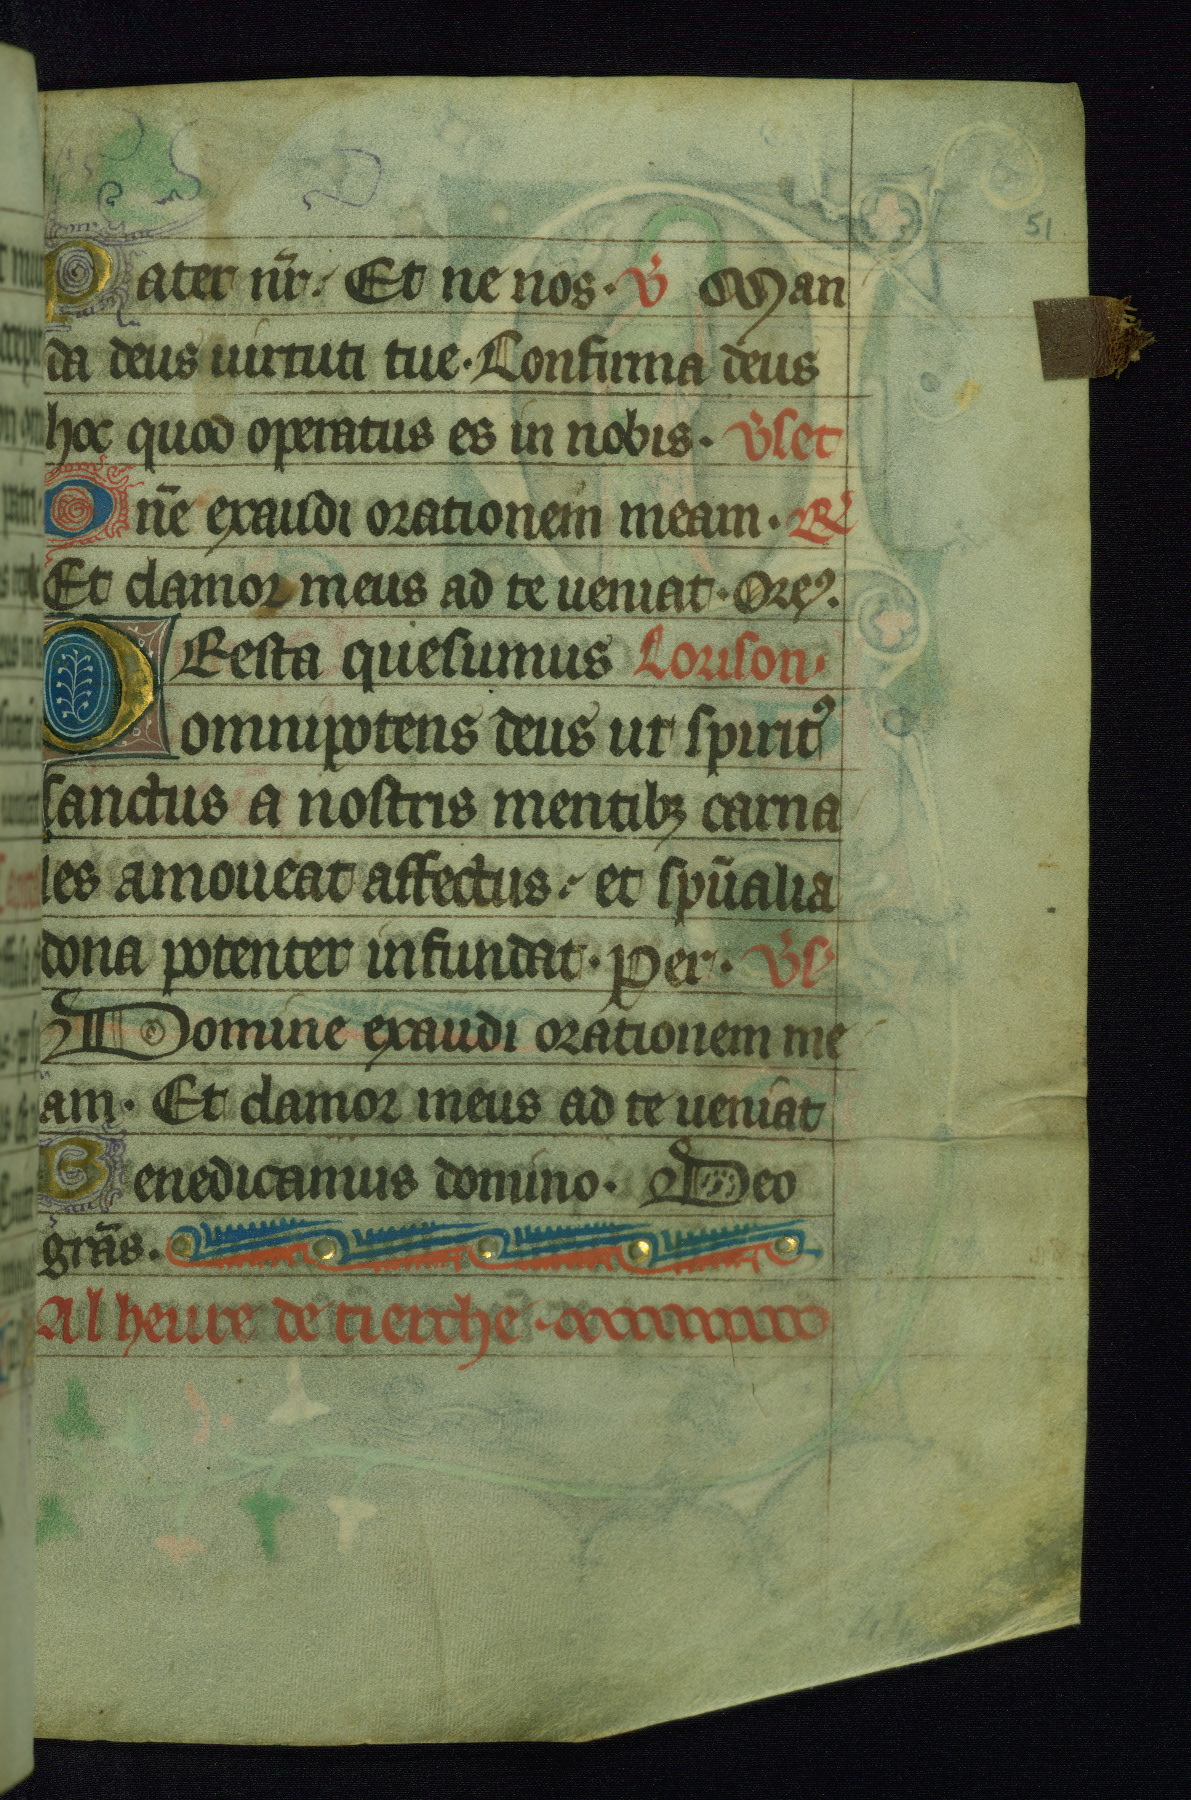 51
Pater nr̄. Et ne nos. V̄ Man
da deus uirtuti tue. Confirma deus
hoc quod operatus es in nobis. V̄set
Dn̄e exaudi orationem meam. R̄
Et clamor meus ad te ueniat. Orem9.
PResta quesumus Lorison.
omnipotens deus ut spirit9
sanctus a nostris mentibꝫ carna
les amoueat affectus. et spūalia
dona potenter infundat. Per. V̄s
Domine exaudi orationem me
am. Et clamor meus ad te ueniat
Benedicamus domino. Deo
grās.
Al heure de tierche.